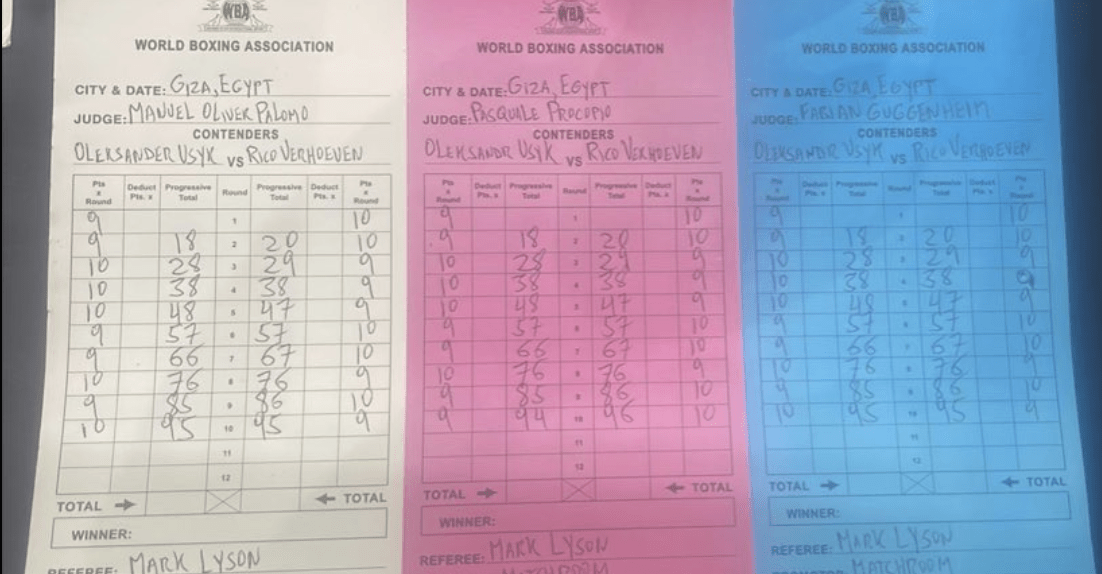 WBA
WORLD BOXING ASSOCIATION
CITY & DATE: GIZA, EGYPT
JUDGE: MANUEL OLIVER PALOMO
CONTENDERS
OLEKSANDER USYK VS RICO VERHOEVEN
Pts x Round Deduct Pts. x Progressive Total Round Progressive Total Deduct Pts. x Pts x Round
9 1 10
9 18 2 20 10
10 28 3 29 9
10 38 4 38 9
10 48 5 47 9
9 57 6 57 10
9 66 7 67 10
10 76 8 76 9
9 85 9 86 10
10 95 10 95 9
11
12
TOTAL TOTAL
WINNER:
REFEREE: MARK LYSON
WBA
WORLD BOXING ASSOCIATION
CITY & DATE: GIZA, EGYPT
JUDGE: PASQUALE PROCOPIO
CONTENDERS
OLEKSANDR USYK VS RICO VERHOEVEN
Pts x Round Deduct Pts. x Progressive Total Round Progressive Total Deduct Pts. x Pts x Round
9 1 10
9 18 2 20 10
10 28 3 29 9
10 38 4 38 9
10 48 5 47 9
9 57 6 57 10
9 66 7 67 10
10 76 8 76 9
9 85 9 86 10
9 94 10 96 10
11
12
TOTAL TOTAL
WINNER:
REFEREE: MARK LYSON
MATCHROOM
WBA
WORLD BOXING ASSOCIATION
CITY & DATE: GIZA, EGYPT
JUDGE: FABIAN GUGGENHEIM
CONTENDERS
OLEKSANDR USYK VS RICO VERHOEVEN
Pts x Round Deduct Pts. x Progressive Total Round Progressive Total Deduct Pts. x Pts x Round
9 1 10
9 18 2 20 10
10 28 3 29 9
10 38 4 38 9
10 48 5 47 9
9 57 6 57 10
9 66 7 67 10
10 76 8 76 9
9 85 9 86 10
10 95 10 95 9
11
12
TOTAL TOTAL
WINNER:
REFEREE: MARK LYSON
PROMOTOR MATCHROOM